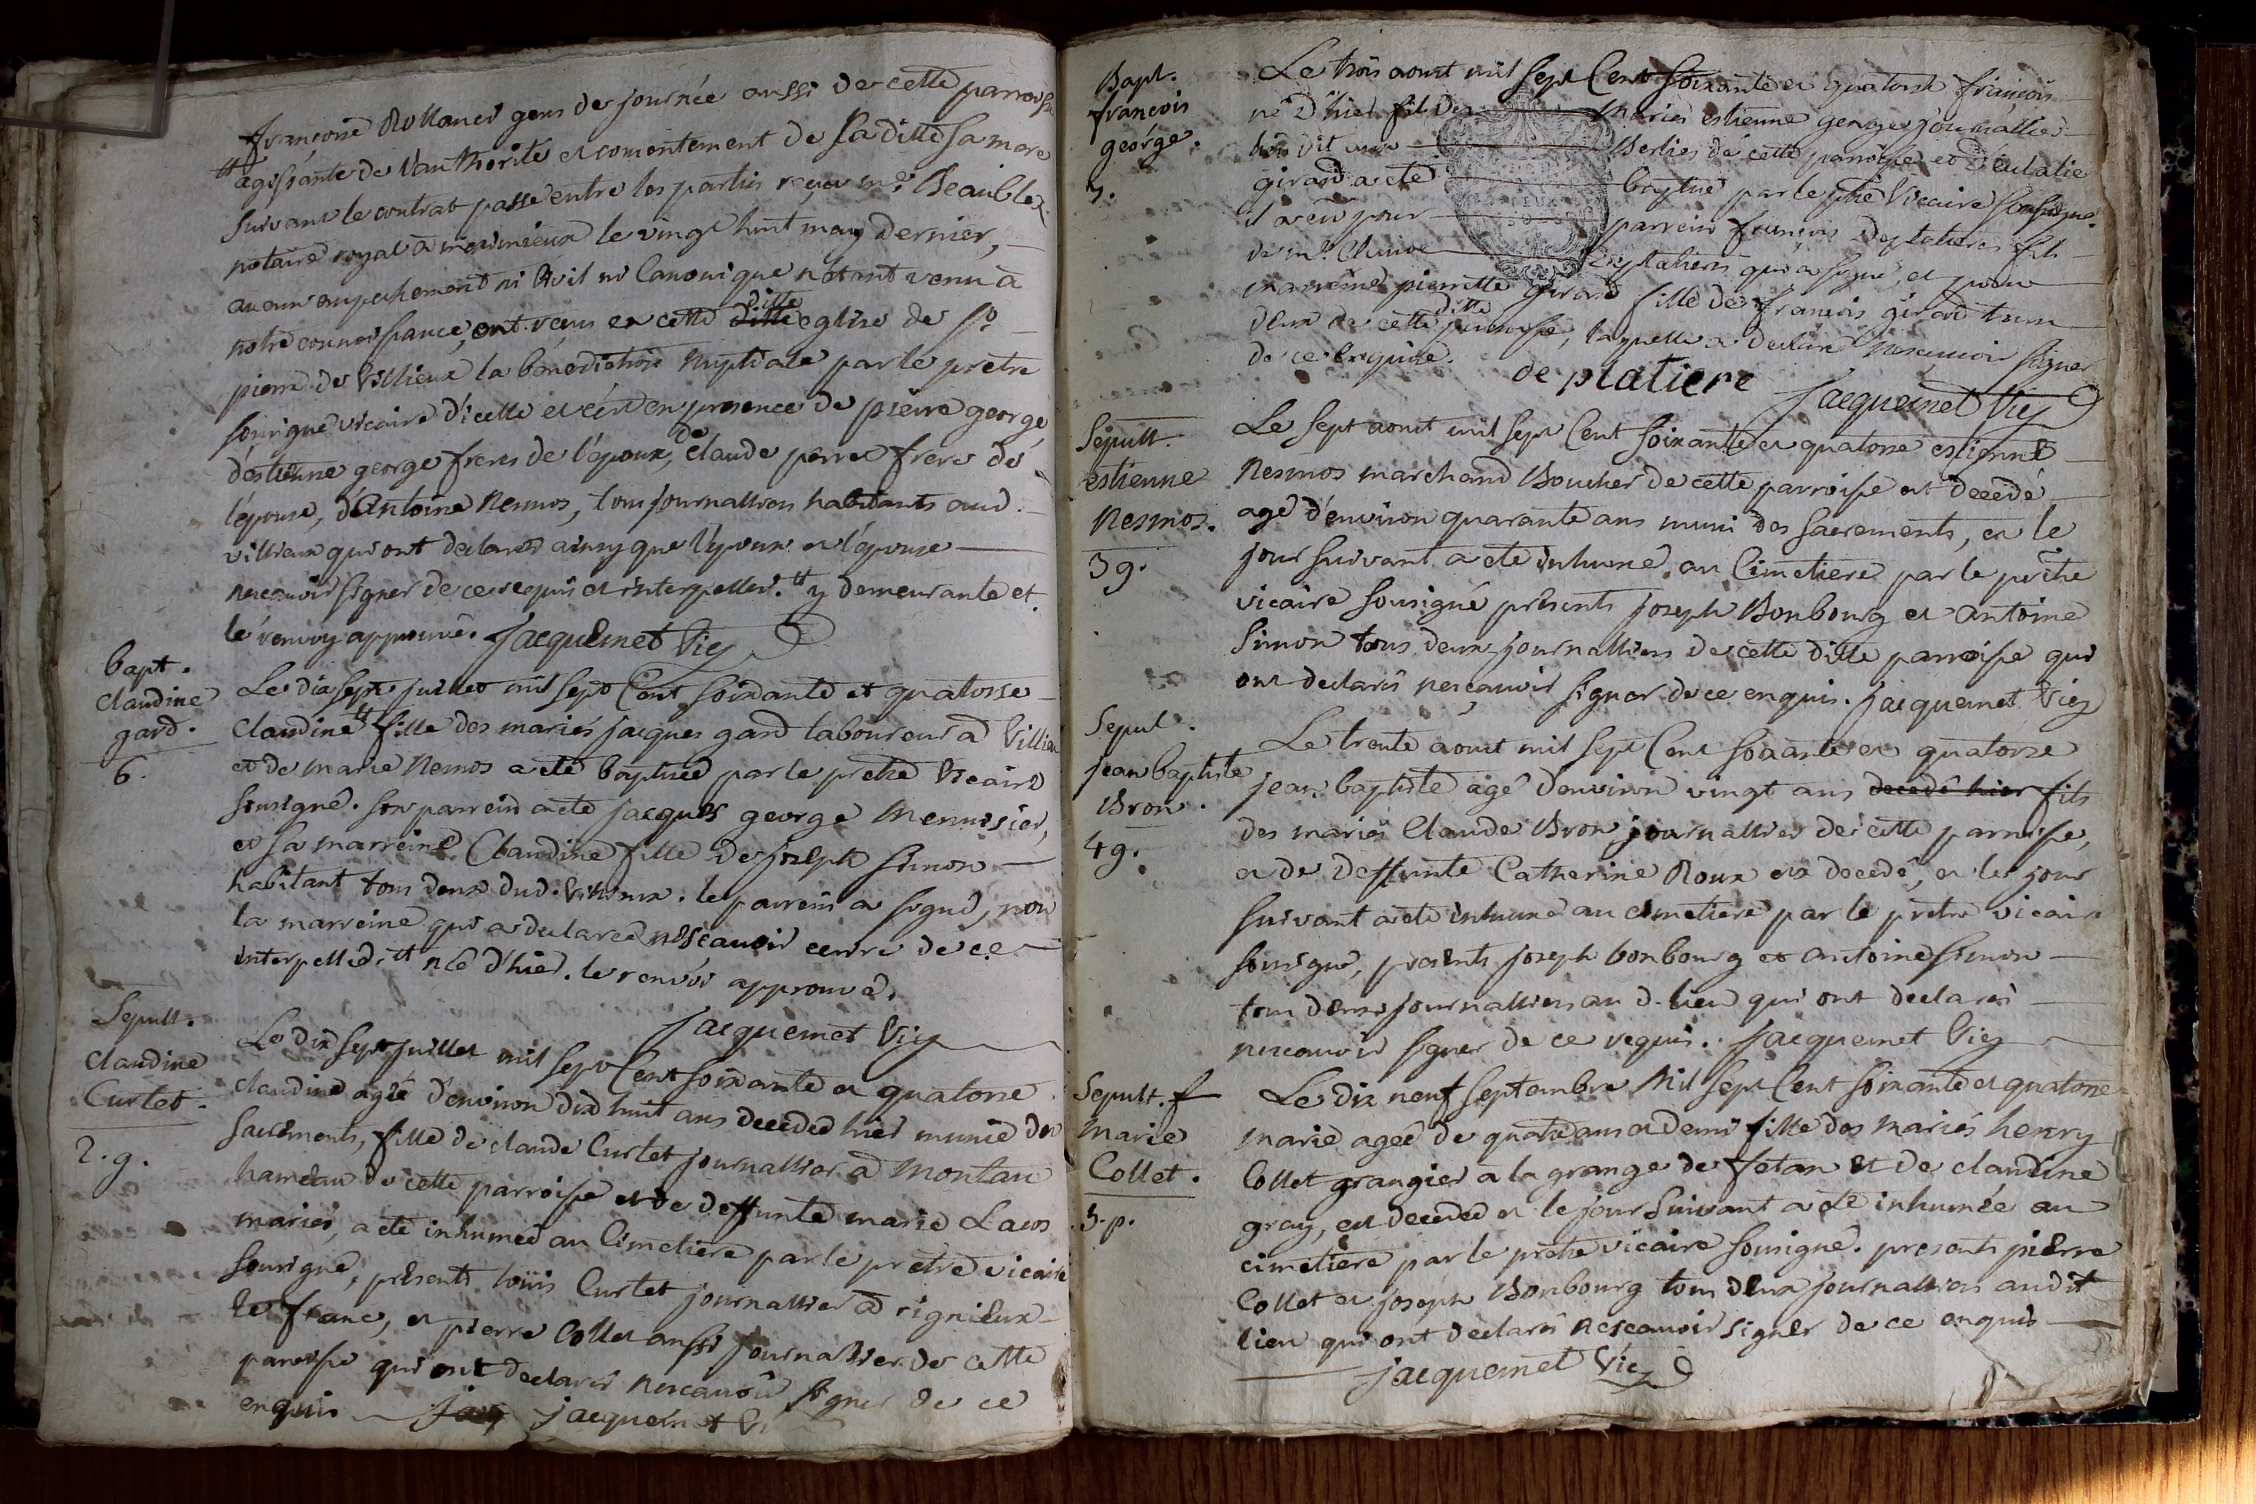 françoise Rollanes gens de journée aussi de cette parroisse
# agissante de l'authorité et consentement de sa ditte sa mere
suivant le contrat passé entre les parties reçu me. Beaublez
notaire royal à meximieux le vingt huit may dernier,
aucun empechement ni Civil ni Canonique n'etant venu à
notre connoissance, ont reçus en cette ditte eglise de St
pierre de Villieux la bénediction nuptiale par le pretre
sousigné vicaire d'icelle et ce en presence de pierre george
d'estienne george freres de l'époux, de claude perret frere de
l'épouse, d'Antoine Nesmos, tous journalliers habitants aud.
villieux qui ont declarés ainsy que l'époux et l'épouse
nescavoir signer de ce requis et interpellés. # y demeurante et
le renvoy approuvé. Jacquemet Vic
bapt.
claudine
gard.
6.
Le dix sept juillet mil sept Cent soixante et quatorse
Claudine # fille des mariés jacques gard laboureur à Villieu
et de marie Nemos a été baptisée par le pretre vicaire
sousigné. son parrein a eté jacques george Menuisier,
et sa marreine Claudine fille de joseph simon
habitant tous deux dud. Villieux. le parrein a signé, non
la marreine qui a declaree nescavoir ecrire de ce
interpellee. # née d'hier. le renvoi approuvé.
Jacquemet Vic
Sepult.
claudine
Curtet.
2. g.
Le dix sept juillet mil sept Cent soixante et quatorse
claudine agée d'environ dix huit ans decedée hier munie des
sacrements, fille de claude Curtet journallier à Montau
hameau de cette parroisse et de deffunte marie Laus
mariés, a été inhumée au Cimetiere par le pretre vicaire
sousigné, présents loüis Curtet journallier à rignieux
le franc, et pierre Collet aussi journallier de cette
parroisse qui ont declarés nescavoir signer de ce
enquis jacquemet Vi
Bapt.
francois
george.
Le trois aoust mil sept Cent soixante et quatorse françois
né d'hier fils des mariés estienne george journallier
Berlies de cette parroisse et d'eulalie
girard a eté baptisé par le ptre Vicaire sousigné.
il a eu pour parrein françois deplatieres fils
de mr. Claude deplatieres qui a signé, et pour
marreine pierrette girard fille de francois girard tous
deux de cette ditte parroisse, laquelle a declaré nescavoir signer
de ce enquise.
de platiere
Jacquemet Vic
Sepult.
estienne
Nesmos.
39.
Le sept aoust mil sept Cent soixante et quatorse estienne
Nesmos marchand Boucher de cette parroisse est decedé
agé d'environ quarante ans muni des sacrements, et le
jour suivant a eté inhumé au Cimetiere par le prêtre
vicaire sousigné présents joseph Bonbourg et antoine
simon tous deux journalliers de cette ditte parroisse qui
ont declarés nesçavoir signer de ce enquis. Jacquemet Vic
Sepul.
jean baptiste
Bron.
49.
Le trente aoust mil sept Cent soixante et quatorse
jean baptiste agé d'environ vingt ans decedé hier fils
des mariés Claude Bron journallier de cette parroisse,
et de deffunte Catherine Roux est decedé, et le jour
suivant a eté inhumé au cimetiere par le pretre vicaire
sousigné, présents joseph bonbourg et antoine simon
tous deux journalliers au d. lieu qui ont declarés
nescavoir signer de ce requis. Jacquemet Vic
Sepult. f
marie
Collet.
5. p.
Le dix neuf septembre Mil sept Cent soixante et quatorse
marie agée de quatre ans et demi fille des mariés henry
Collet grangier à la grange de fetan et de claudine
gray, est decedée et le jour suivant a eté inhumée au
cimetiere par le prêtre vicaire sousigné. presents pierre
Collet et joseph Bonbourg tous deux journalliers audit
lieu qui ont declarés nescavoir signer de ce enquis
jacquemet Vic